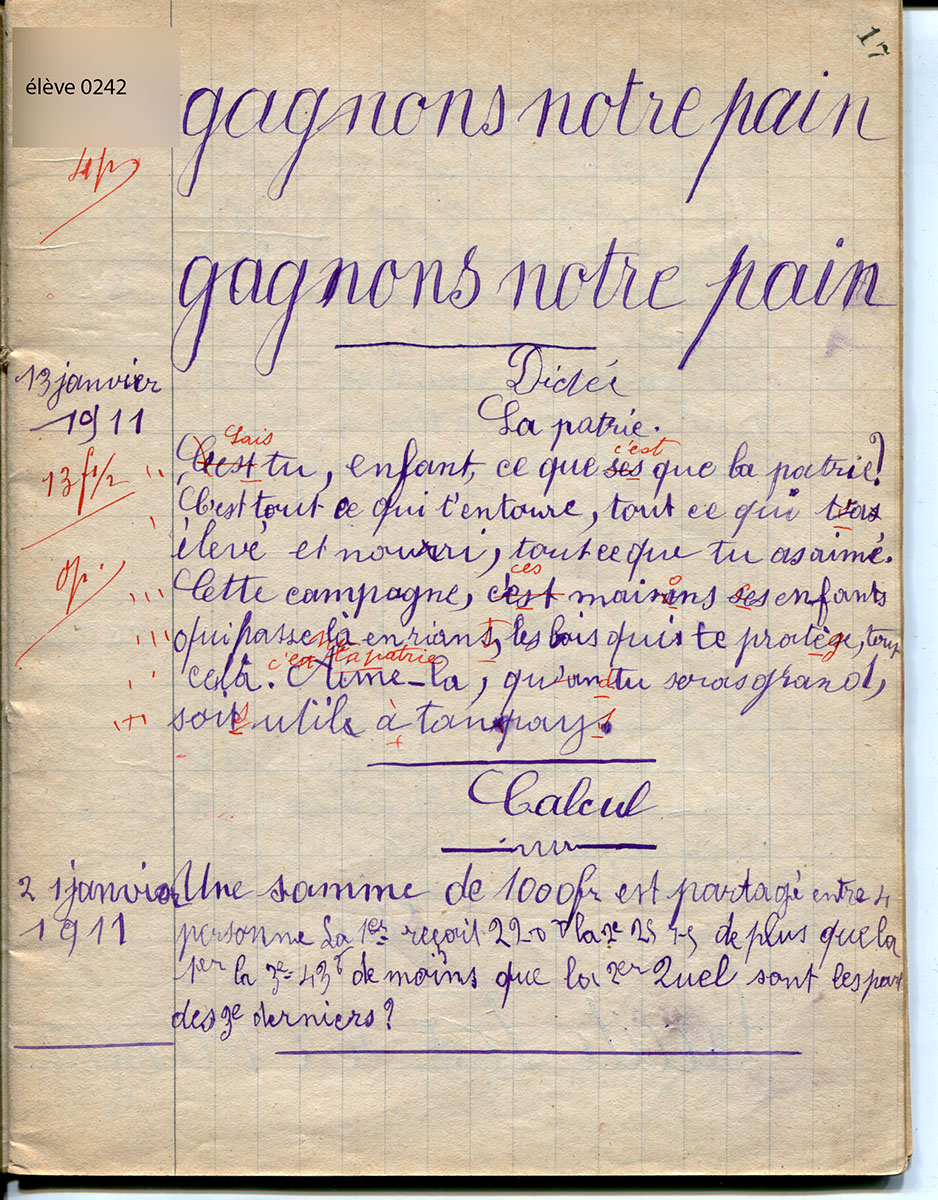 17
élève 0242
gagnons notre pain
gagnons notre pain
Dictée
13 janvier
1911
La patrie.
Sais c'est
C'est tu, enfant, ce que ses que la patrie?
13 f 1/2
C'est tout ce qui t'entoure, tout ce qui t'as
élevé et nourri, tout ce que tu as aimé.
ces
Cette campagne, c'est maisins ses enfants
qui passe là en riant, les bois qui te protège, tous
c'est la patrie
cela. Aime-la, qu'an tu seras grand,
soit utile à tan pays.
Calcul
2 1 janvier
1911
Une samme de 1000fr est partagé entre 4
personne La 1er reçoit 220 la 2e de plus que la
1er la 3e 43f de moins que la 2er Quel sont les par
des 3e derniers?